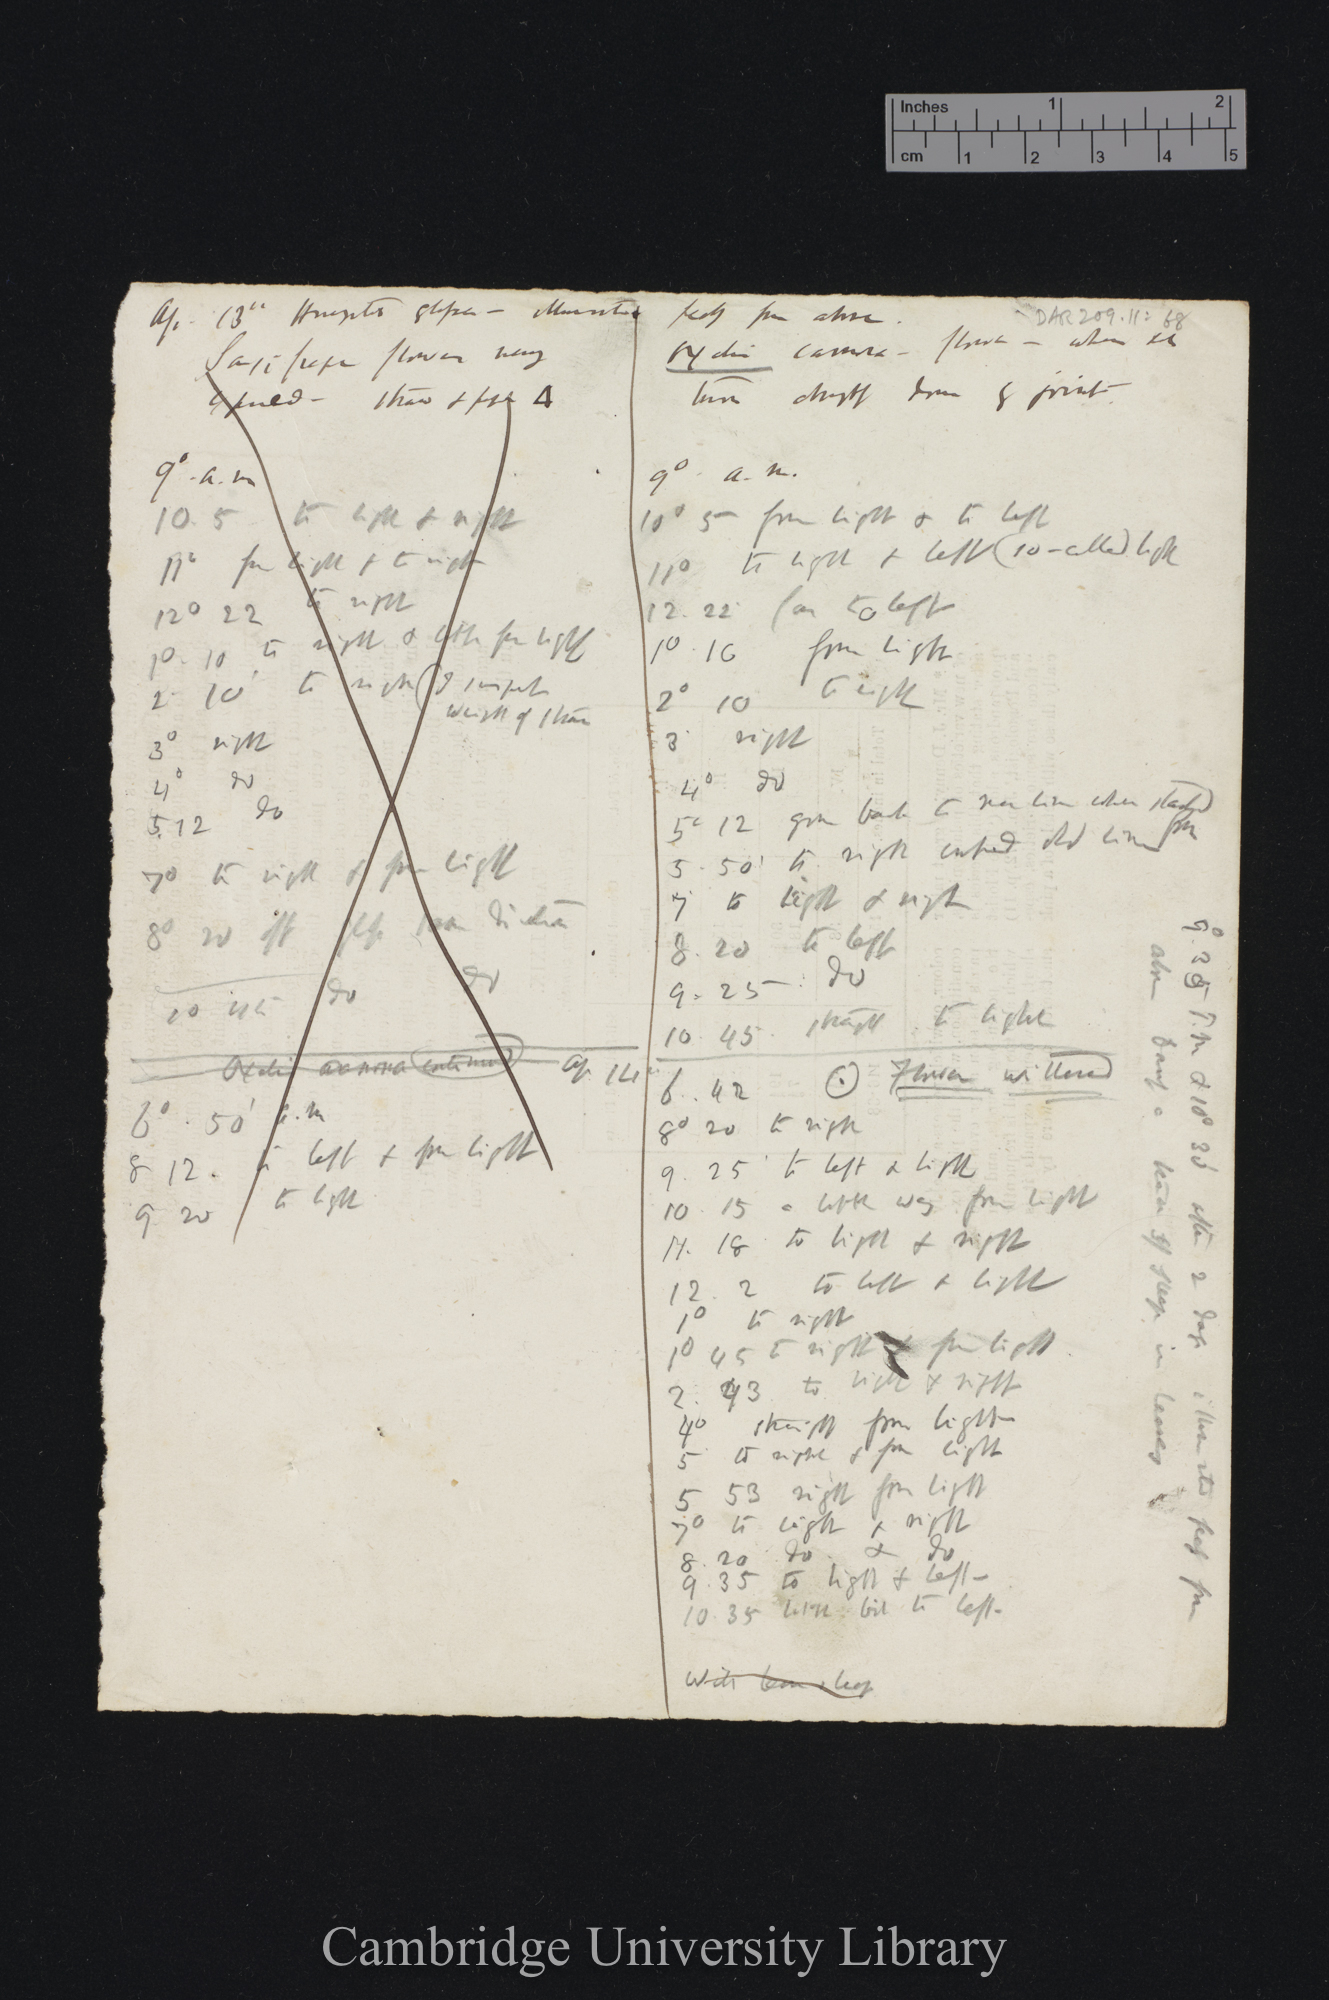 Inches 1 2
cm 1 2 3 4 5
DAR 209.11: 68
Ap. 13th through glass – illuminated
Saxifrage flower
opened – straw
9° a.m
10. 5 to light & right
11° from light & to right
12° 22 to right
1°. 10 to right & little from light
2. 10' to right (I suspect
weight of straw
3° right
4° do
5. 12 do
7° to right & from light
8° 20
10 45 do do
continued Ap. 14th
6°. 50' a.m
8 12. to left & from light
9 20 to light
from above.
Oxalis carnosa – flower – when it
turn down joint
9° a.m.
10° 5 from light & to left
11° to light & left (so-called light
12. 22 far to left
1°. 10 from light
2° 10 to right
3 right
4° do
5° 12 gone back to near line when started
from
5. 50' to right old line
7 to light & right
8. 20 to left
9. 25 do
10 45 straight to light
6. 42 Flower withered
8° 20 to right
9. 25 to left & light
10. 15 a little way from light
11. 18 to light & right
12. 2 to left & light
1° to right
1° 45 to right & from light
2. 43 to light & right
4° straight from light
5 to right & from light
5 53 right from light
7° to light & right
8. 20 do & do
9. 35 to light & left –
10. 35 little bit to left –
9° 35' P.M & 10° 30' after 2 days from
above of sleep in leaves
Cambridge University Library